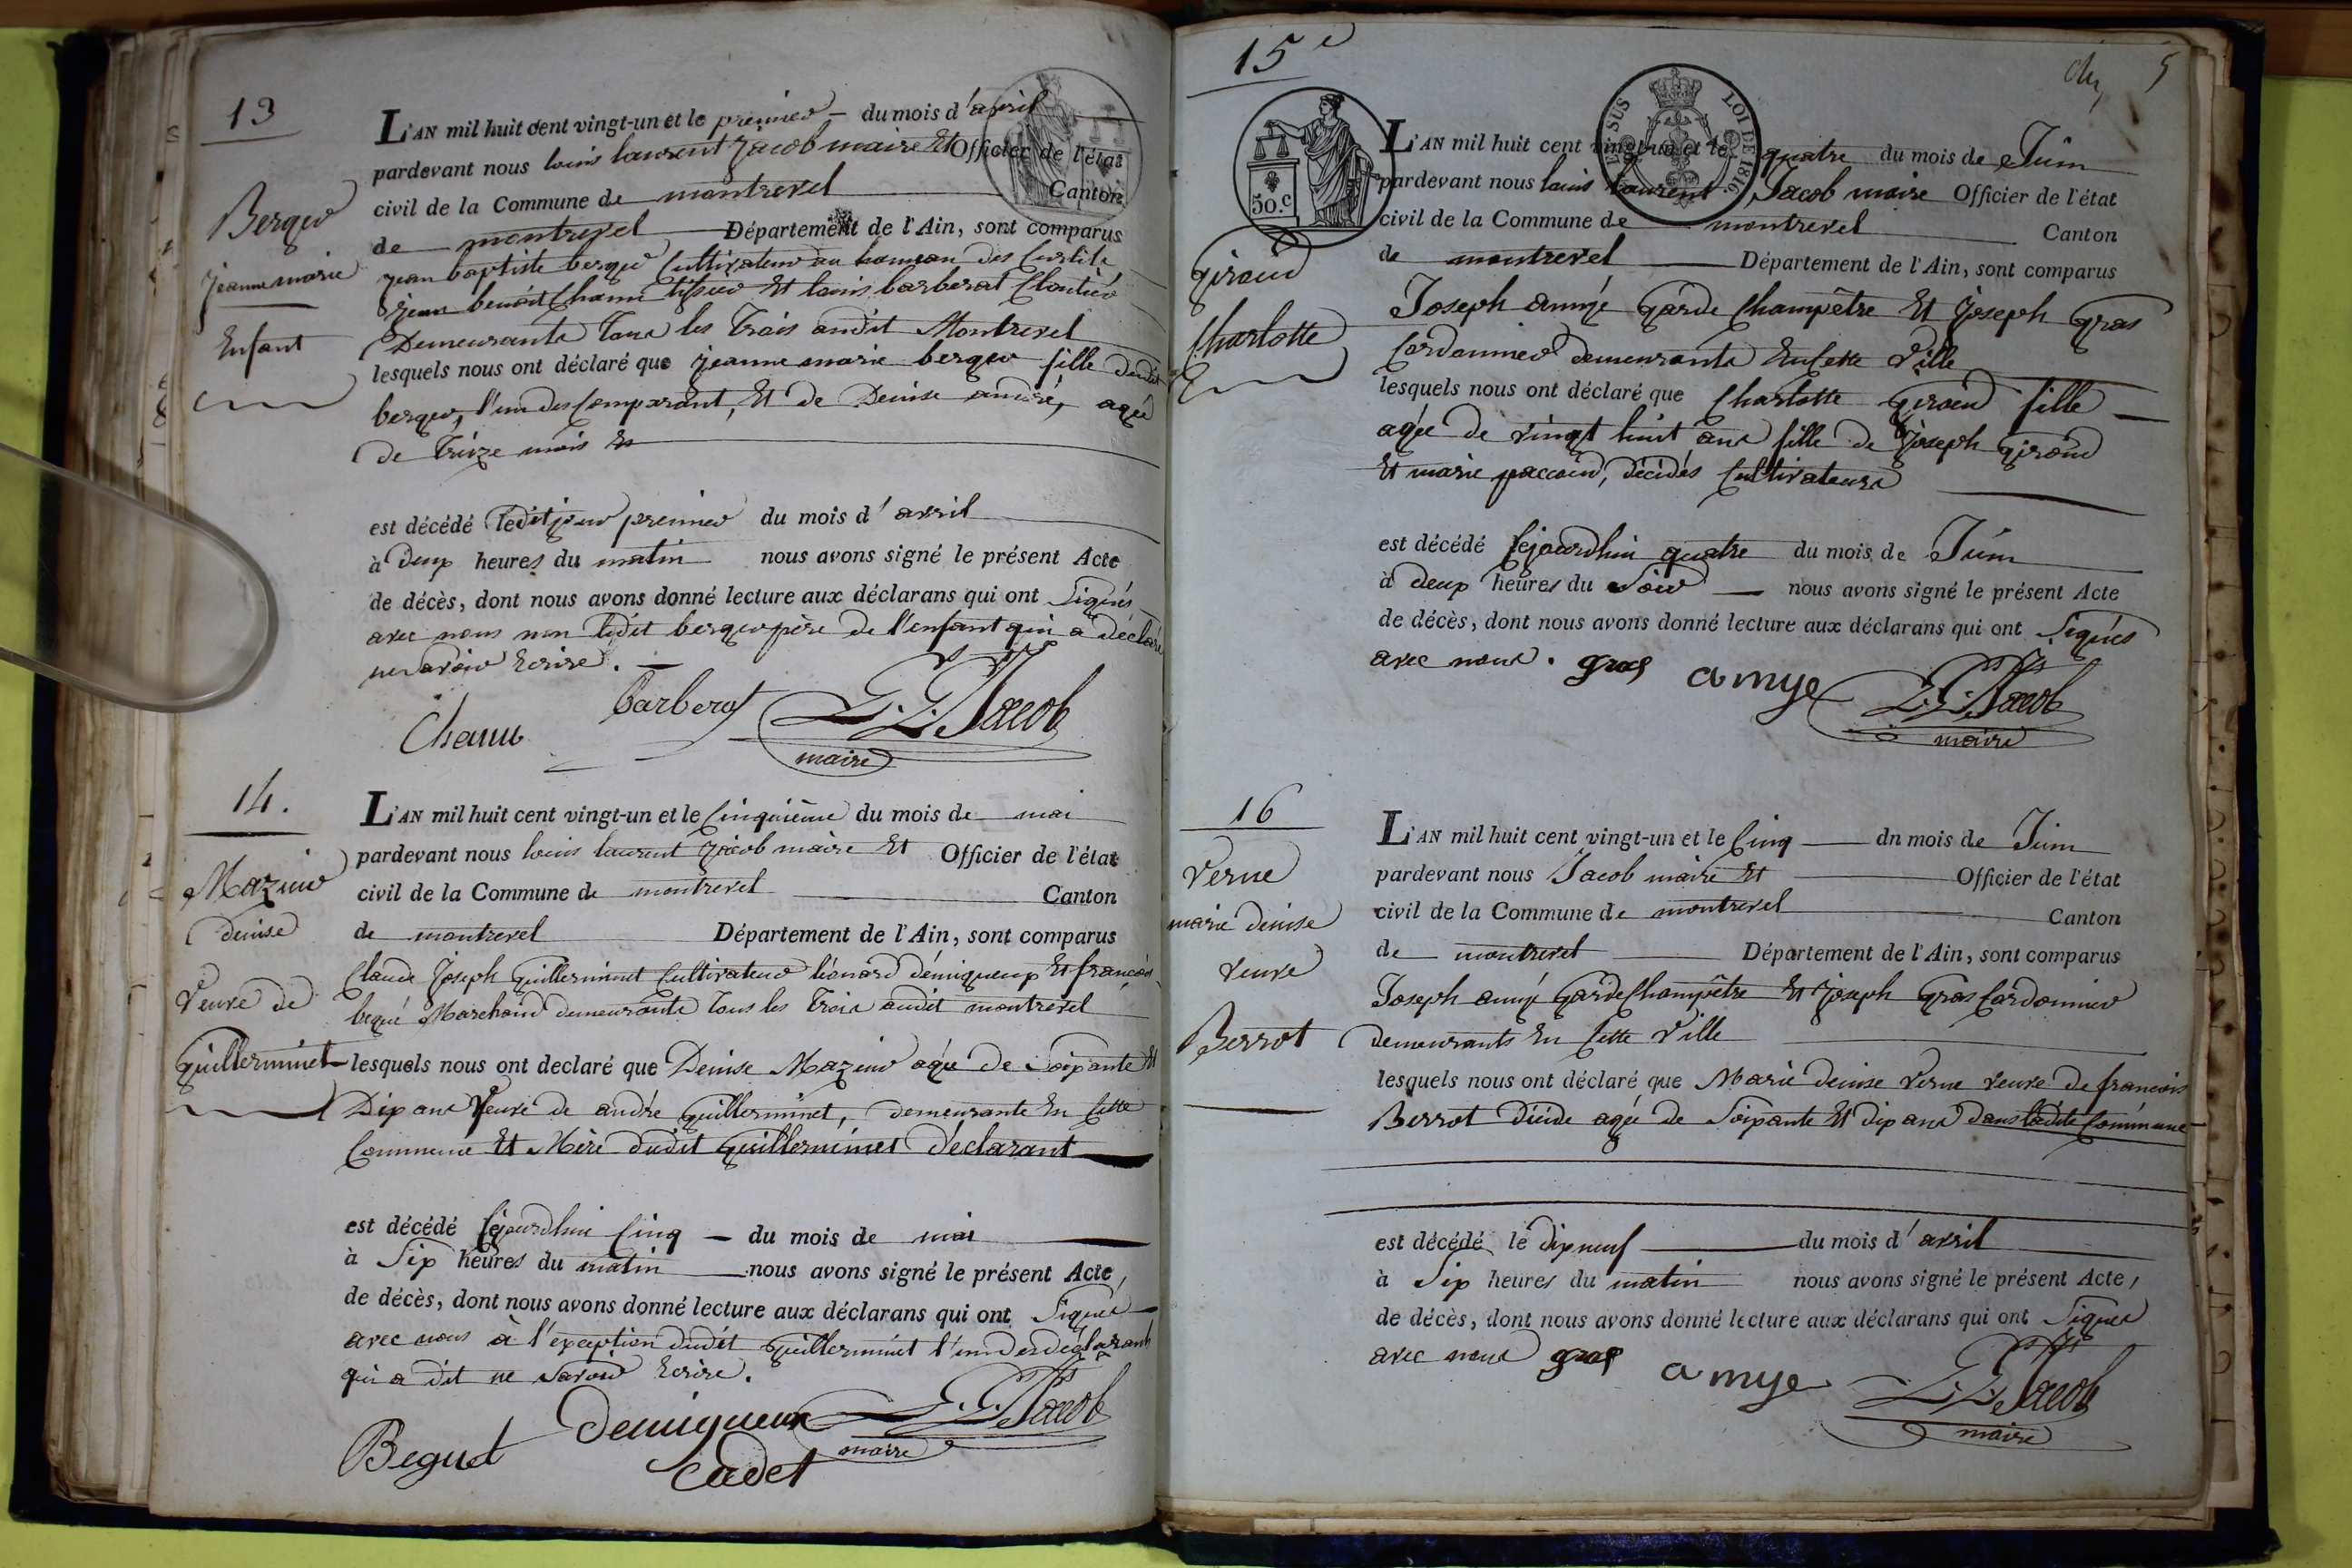 13
Berger
jeanne marie
Enfant
L'AN mil huit cent vingt-un et le premier du mois d'avril
pardevant nous louis laurent Jacob maire Et Officier de l'état
civil de la Commune de montrevel Canton
de montrevel Département de l'Ain, sont comparus
jean baptiste berger Cultivateur au hameau des
jean benoit Chanu tissier Et louis barberat Cloutier
Demeurants Tous les Trois audit Montrevel
lesquels nous ont déclaré que jeanne marie berger fille dudit
berger, l'un des Comparant, Et de Denise andré, agée
de Treize mois
est décédé ledit jour premier du mois d'avril
à deux heures du matin nous avons signé le présent Acte
de décès, dont nous avons donné lecture aux déclarans qui ont Signés
avec nous non ledit berger père de l'enfant qui a déclaré
ne savoir Ecrire.
Chanu Barberat L. L. Jacob
maire
14.
Mazuir
Denise
Veuve de
Guilleminet
L'AN mil huit cent vingt-un et le Cinquième du mois de mai
pardevant nous louis laurent Jacob maire Et Officier de l'état
civil de la Commune de montrevel Canton
de montrevel Département de l'Ain, sont comparus
Claude Joseph Guilleminet Cultivateur léonard démiqueux Et françois
begué Marchand demeurants Tous les Trois audit montrevel
lesquels nous ont declaré que Denise Mazuir agée de Soixante Et
Dix ans Veuve de andré Guilleminet, demeurante En Cette
Commune Et Mère dudit Guilleminet Déclarant
est décédé Cejourdhui Cinq du mois de mai
à Six heures du matin nous avons signé le présent Acte,
de décès, dont nous avons donné lecture aux déclarans qui ont Signés
avec nous à l'exception dudit Guilleminet l'un des déclarants
qui a dit ne savoir Ecrire.
Begud Demiqueux L. L. Jacob
Cadet maire
15e
5
50.c
SUS LOI DE 1816.
Giroud
Charlotte
L'AN mil huit cent vingt-un et le quatre du mois de Juin
pardevant nous louis laurent Jacob maire Officier de l'état
civil de la Commune de montrevel Canton
de montrevel Département de l'Ain, sont comparus
Joseph amyé Garde Champêtre Et Joseph Gras
Cordonnier demeurants En Cette Ville
lesquels nous ont déclaré que Charlotte Giroud fille
agée de vingt huit ans fille de Joseph Giroud
Et marie paccoud, décédés Cultivateurs
est décédé Cejourdhui quatre du mois de Juin
à deux heures du Soir nous avons signé le présent Acte
de décès, dont nous avons donné lecture aux déclarans qui ont Signés
avec nous. gras amye L. L. Jacob
maire
16
Verne
marie denise
veuve
Berrot
L'AN mil huit cent vingt-un et le Cinq dn mois de Juin
pardevant nous Jacob maire Et Officier de l'état
civil de la Commune de montrevel Canton
de montrevel Département de l'Ain, sont comparus
Joseph amyé Garde Champêtre Et Joseph Gras Cordonnier
demeurants En Cette Ville
lesquels nous ont déclaré que Marie denise Verne veuve de francois
Berrot décédé agée de Soixante Et dix ans dans ladite Commune
est décédé le dixneuf du mois d'avril
à Six heures du matin nous avons signé le présent Acte,
de décès, dont nous avons donné lecture aux déclarans qui ont Signés
avec nous gras amye L. L. Jacob
maire